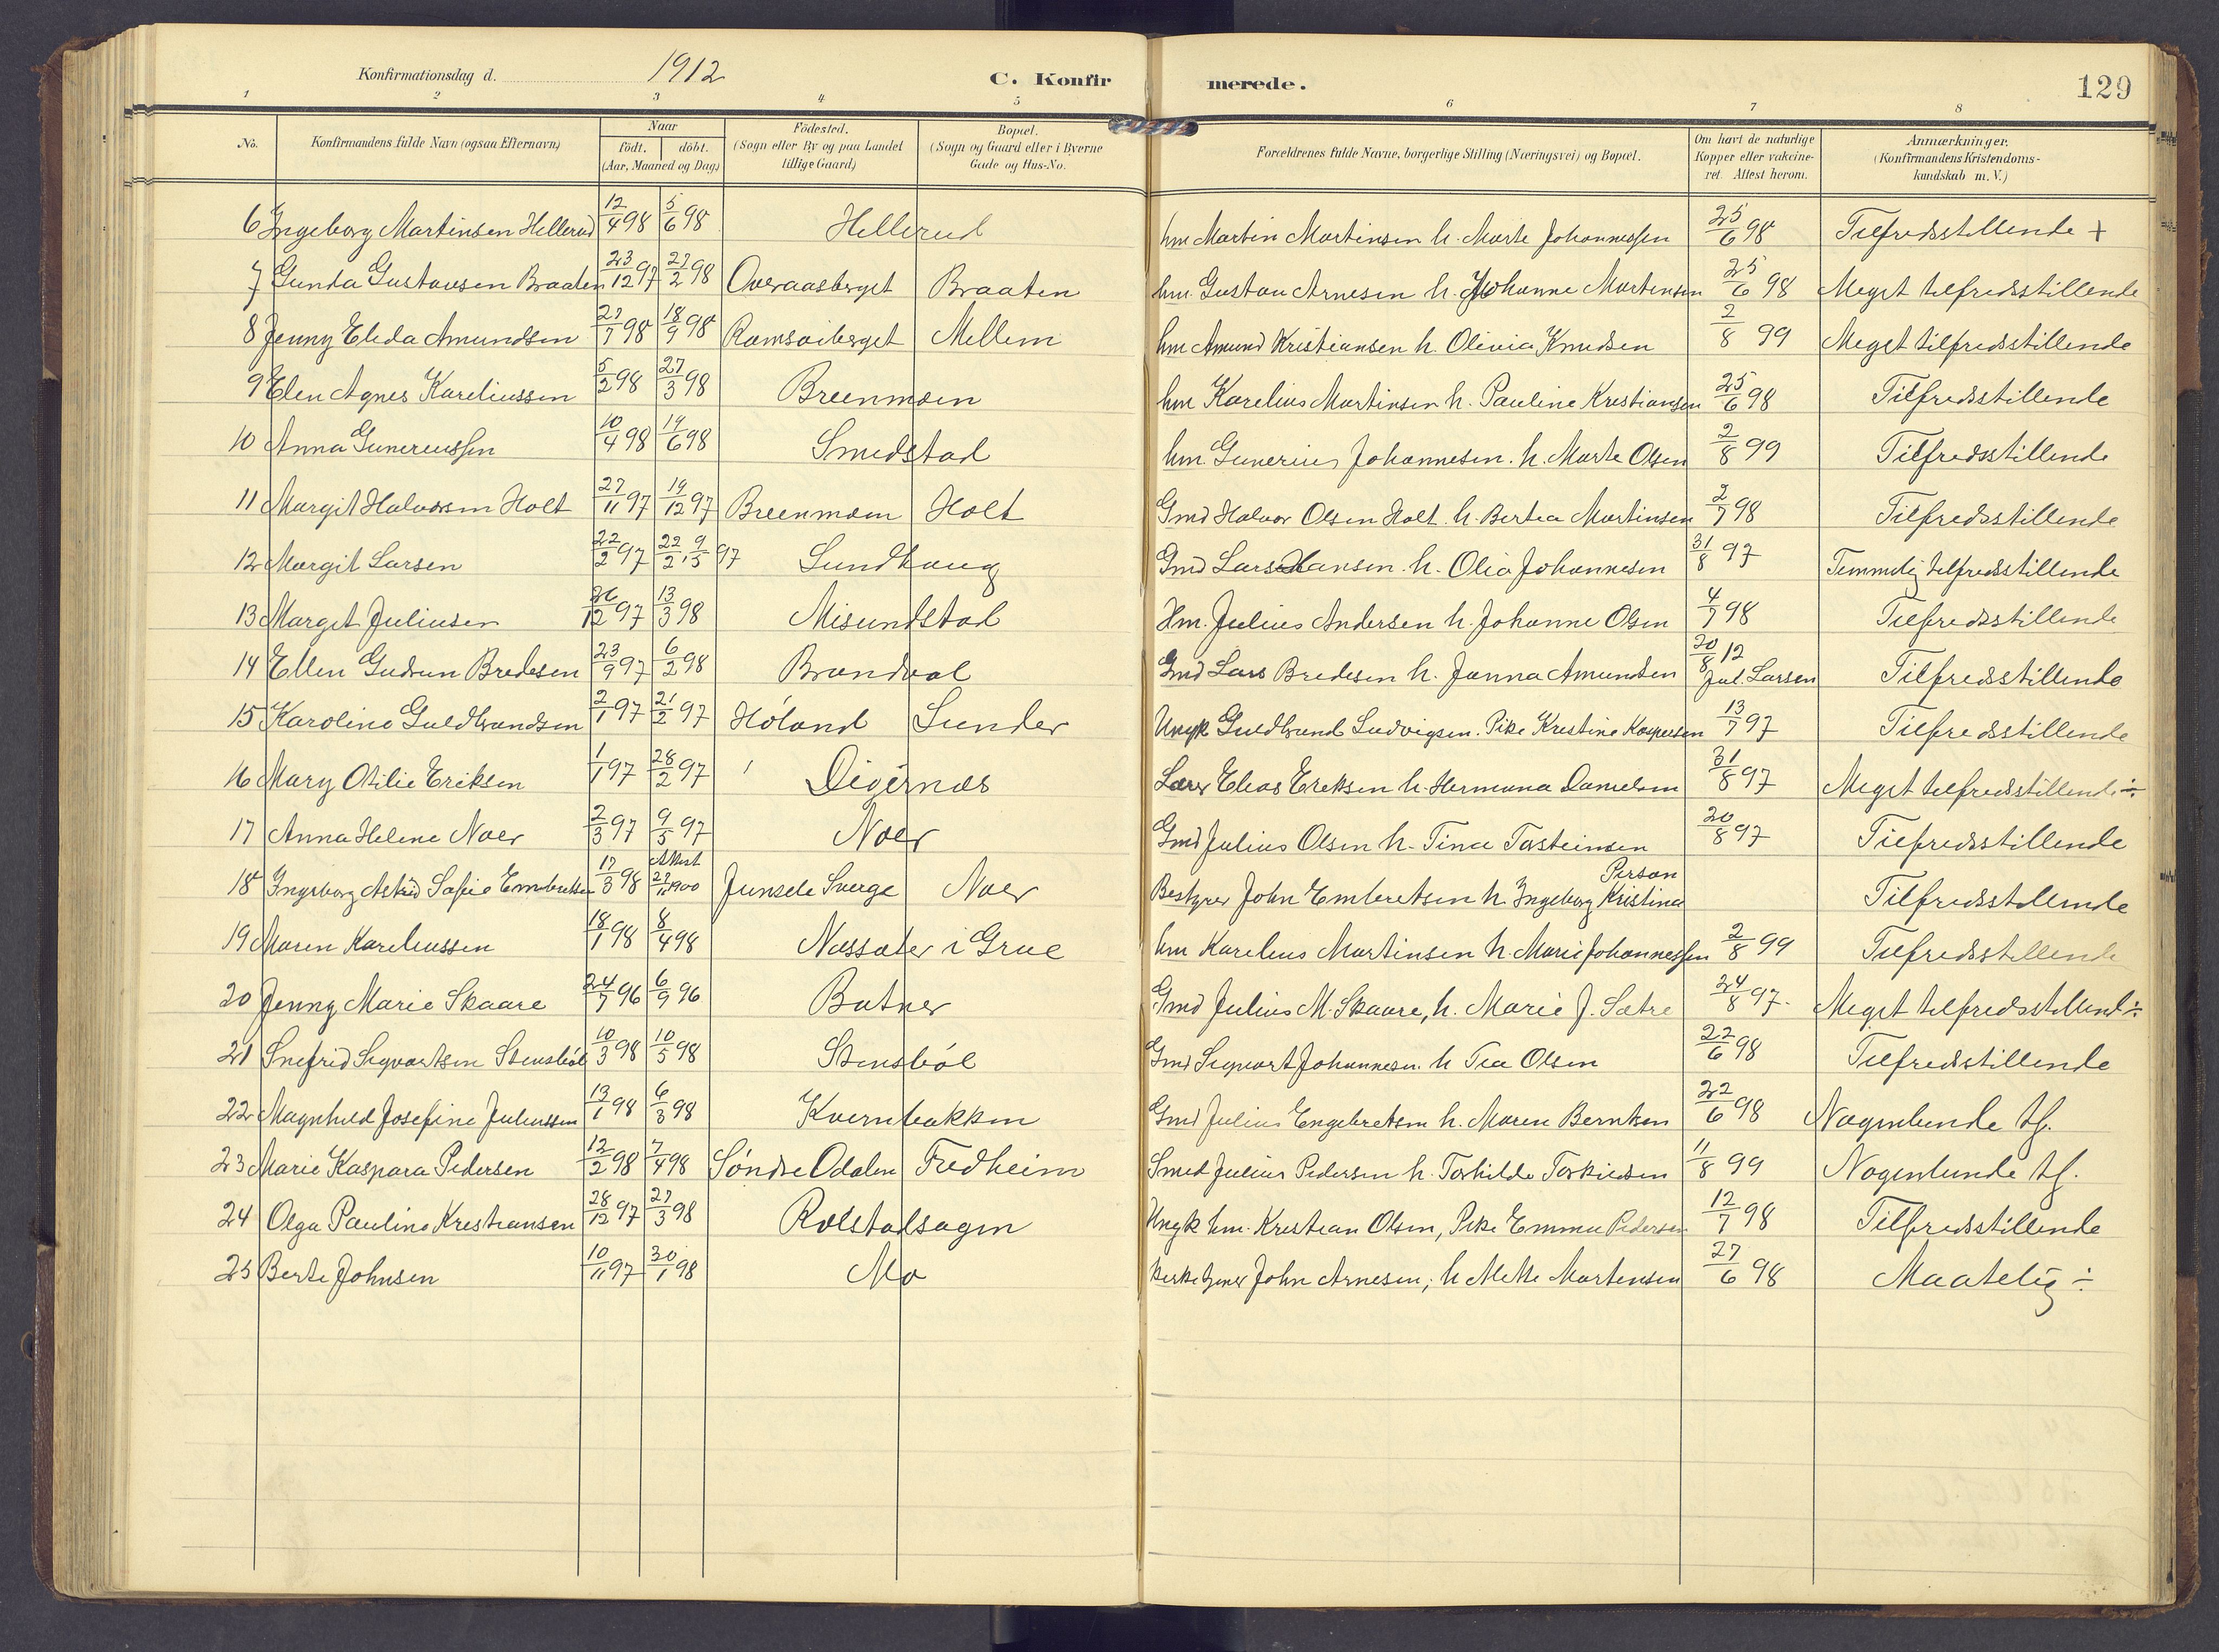 Konfirmationsdag d. 1912 C. Konfirmerede. 129
1 2 3 4 5 6 7 8
No. Konfirmandens fulde Navn (ogsaa Efternavn) Naar födt. döbt. (Aar, Maaned og Dag) Födested. (Sogn eller By og paa Landet tillige Gaard) Bopæl. (Sogn og Gaard eller i Byerne Gade og Hus-No. Forældrenes fulde Navne, borgerlige Stilling (Næringsvei) og Bopæl. Om havt de naturlige Kopper eller vakcineret. Attest herom. Anmærkninger. (Konfirmandens Kristendomskundskab m. V.)
6 Ingeborg Martinsen Hellerud 12/4 98 5/6 98 Hellerud hm Martin Martinsen h. Marte Johannessen 25/6 98 Tilfredsstillende +
7 Gunda Gustavsen Braaten 23/12 97 27/2 98 Overaasberget Braaten hm. Gustav Arnesen h. Johanne Martensen 25/6 98 Meget tilfredsstillende
8 Jenny Elida Amundsen 27/7 98 18/9 98 Ramsøiberget Mellem hm Amund Kristiansen h. Olivia Knudsen 2/8 99 Meget tilfredsstillende
9 Elen Agnes Kareliussen 5/2 98 27/3 98 Breenmoen hm Karelius Martinsen h. Pauline Kristiansen 25/6 98 Tilfredsstillende
10 Anna Gunereussen 10/4 98 19/6 98 Smedstad hm Gunerius Johannesen. h. Marte Olsen 2/8 99 Tilfredsstillende
11 Margit Halvorsen Holt 27/11 97 19/12 97 Breenmoen Holt Gmd Halvor Olsen Holt. h. Bertea Martinsen 2/7 98 Tilfredsstillende
12 Margit Larsen 22/2 97 22/2 9/5 97 Sundhaug Gmd Lars Hansen. h. Olia Johannesen 31/8 97 Temmelig tilfredsstillende
13 Marget Juliusen 26/12 97 13/3 98 Misundstad Hm. Julius Andersen h. Johanne Olsen 4/7 98 Tilfredsstillende
14 Ellen Gudrun Bredesen 23/9 97 6/2 98 Brandval Gmd Lars Bredesen h. Janna Amundsen 20/8 12 Jul. Larsen Tilfredsstillende
15 Karoline Guldbrandsen 2/1 97 21/2 97 Höland Sunder Ungk Guldbrand Ludvigsen. Pike Kristine Kaspersen 13/7 97 Tilfredsstillende
16 Mary Otilie Eriksen 1/1 97 28/2 97 Digernæs Lærer Elias Eriksen h. Hermana Danielsen 31/8 97 Meget tilfredsstillende ÷
17 Anna Helene Noer 2/3 97 9/5 97 Noer Gmd Julius Olsen h. Tina Torsteinsen 20/8 97 Tilfredsstillende
18 Ingeborg Astrid Sofie Embretsen 17/3 98 Attest 27/11 1900 Junsele Sverge Noer Bestyrer John Embretsen h. Ingeborg Kristina Person Tilfredsstillende
19 Maren Kareliussen 18/1 98 8/4 98 Næssæter i Grue hm Karelius Martinsen h. Marie Johannessen 2/8 99 Tilfredsstillende
20 Jenny Marie Skaare 24/7 96 6/9 96 Butner Gmd Julius M. Skaare, h. Marie J. Sætre 24/8 97. Meget tilfredsstillende ÷
21 Snefrid Sigvartsen Stensböl 10/3 98 10/5 98 Stensböl Gmd Sigvart Johannesen. h Tea Olsen 22/6 98 Tilfredsstillende
22 Magnhild Josefine Juliussen 13/1 98 6/3 98 Kvernbakken Gmd Julius Engebretsen h. Maren Berntsen 22/6 98 Nogenlunde tf.
23 Marie Kaspara Pedersen 12/2 98 7/4 98 Söndre Odalen Fredheim Smed Julius Pedersen h. Torhilde Torkildsen 11/8 99 Nogenlunde tf.
24 Olga Pauline Kristiansen 28/12 97 27/3 98 Rolstadsagen Ungk hm. Kristian Olsen, Pike Emma Pedersen 12/7 98 Tilfredsstillende
25 Berte Johnsen 10/11 97 30/1 98 Mo Kirketjener John Arnesen, h Mette Martensen 27/6 98 Maatelig ÷